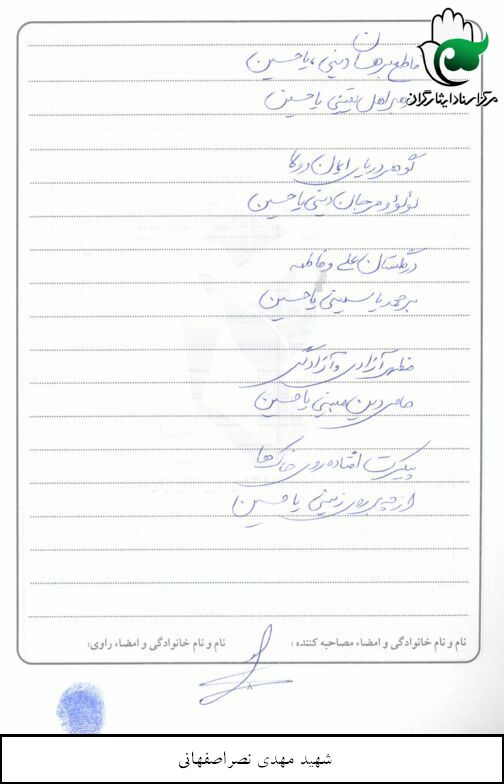 مرکز اسناد ایثارگران
قاطع برهان دینی، یا حسین
رهبر اهل یقینی یا حسین
گوهر دریای ایمان و وفا
لؤلؤ و مرجان دینی یا حسین
در گلستان علی و فاطمه
بر محمد یاسمینی یا حسین
مظهر آزادی و آزادگی
حامی دین مبینی یا حسین
پیکرت افتاده روی خاک‌ها
از چه بر روی زمینی یا حسین
نام و نام خانوادگی و امضاء مصاحبه کننده :
نام و نام خانوادگی و امضاء راوی:
۸
شهید مهدی نصراصفهانی